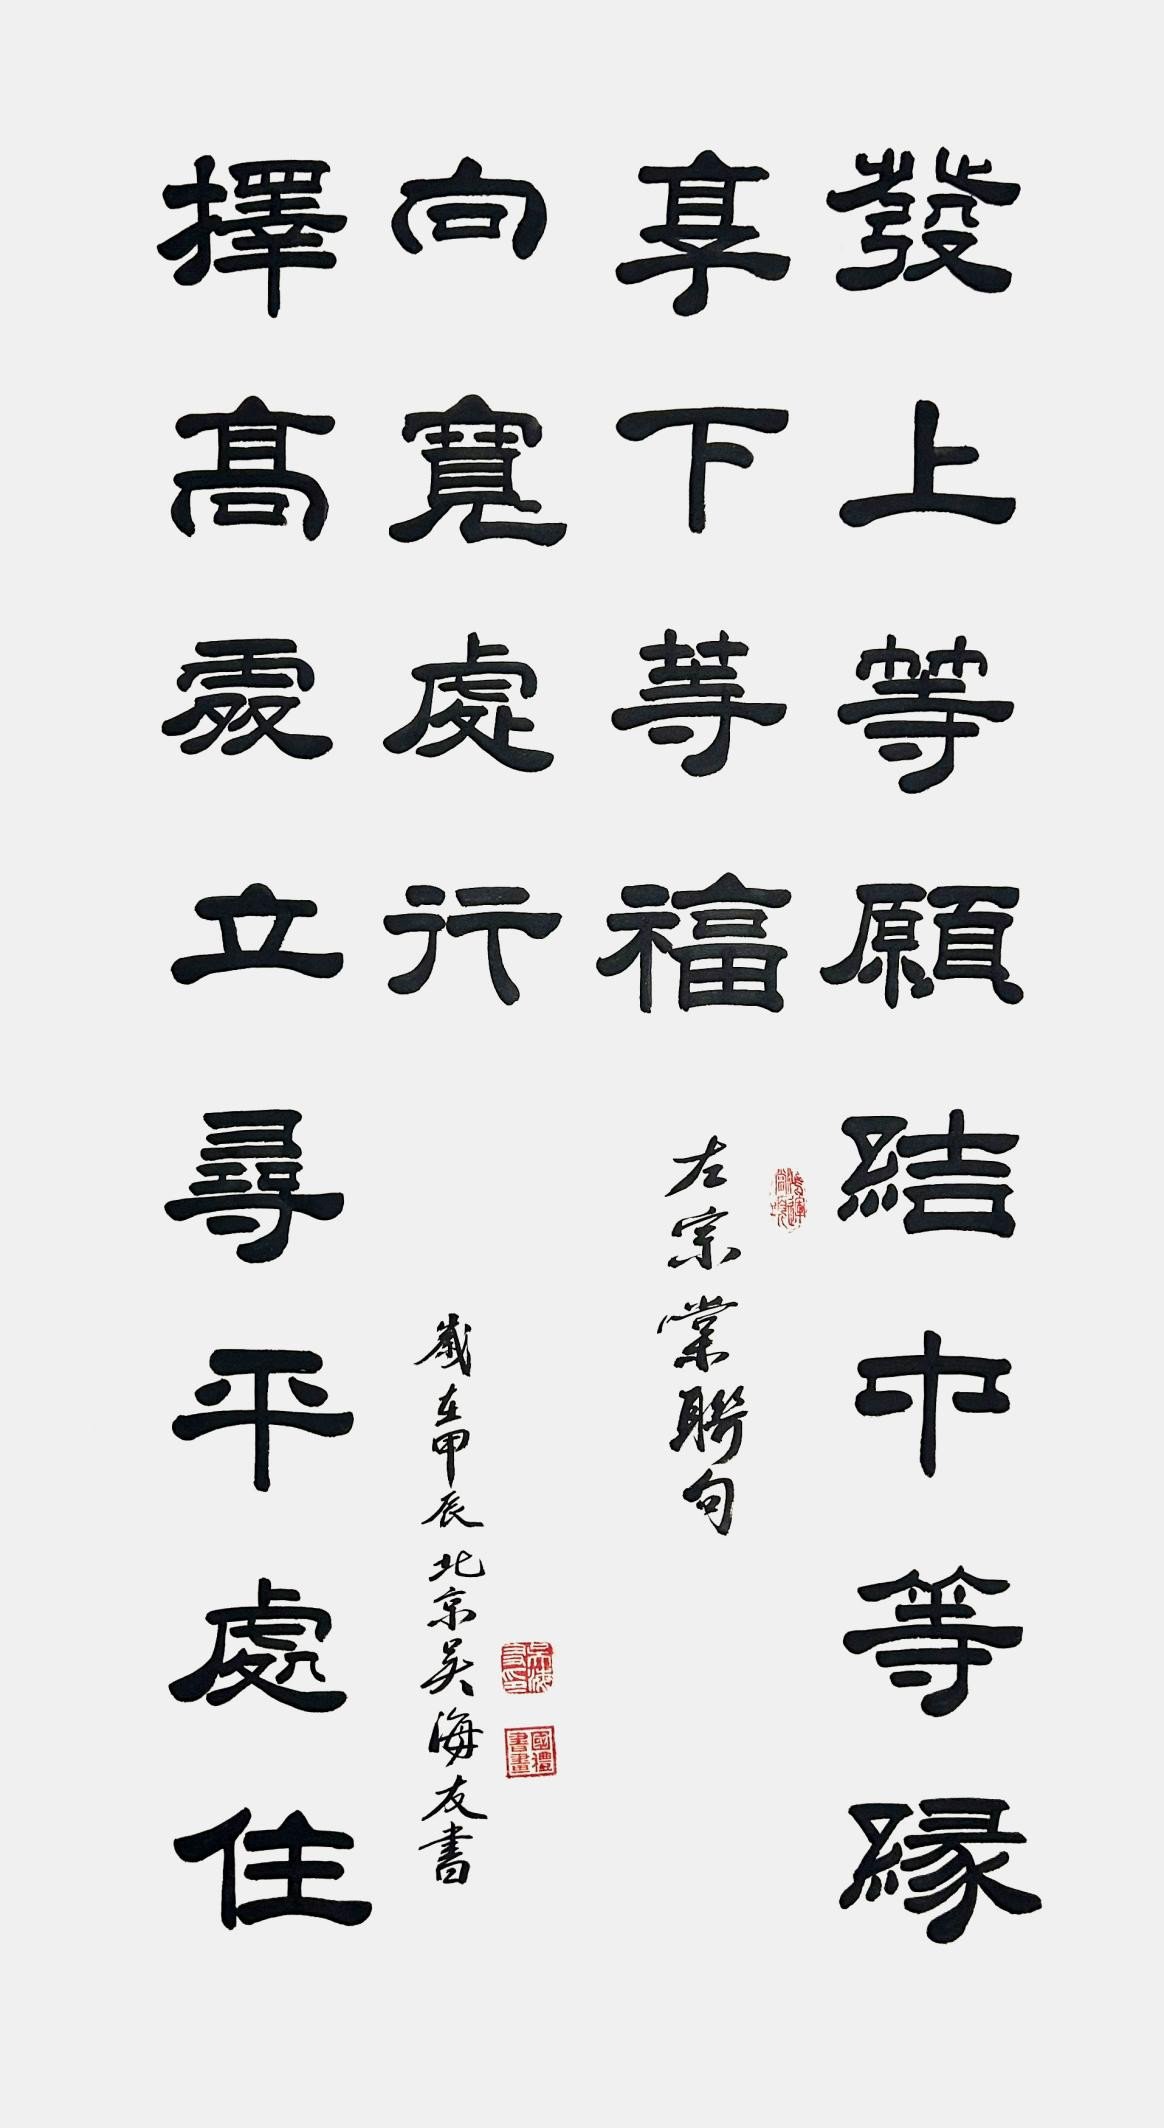 發上等願結中等緣
享下等福
左宗棠聯句
擇高處立尋平處住
向寬處行
歲在甲辰北京吳海友書
吳海友印
國禮書畫